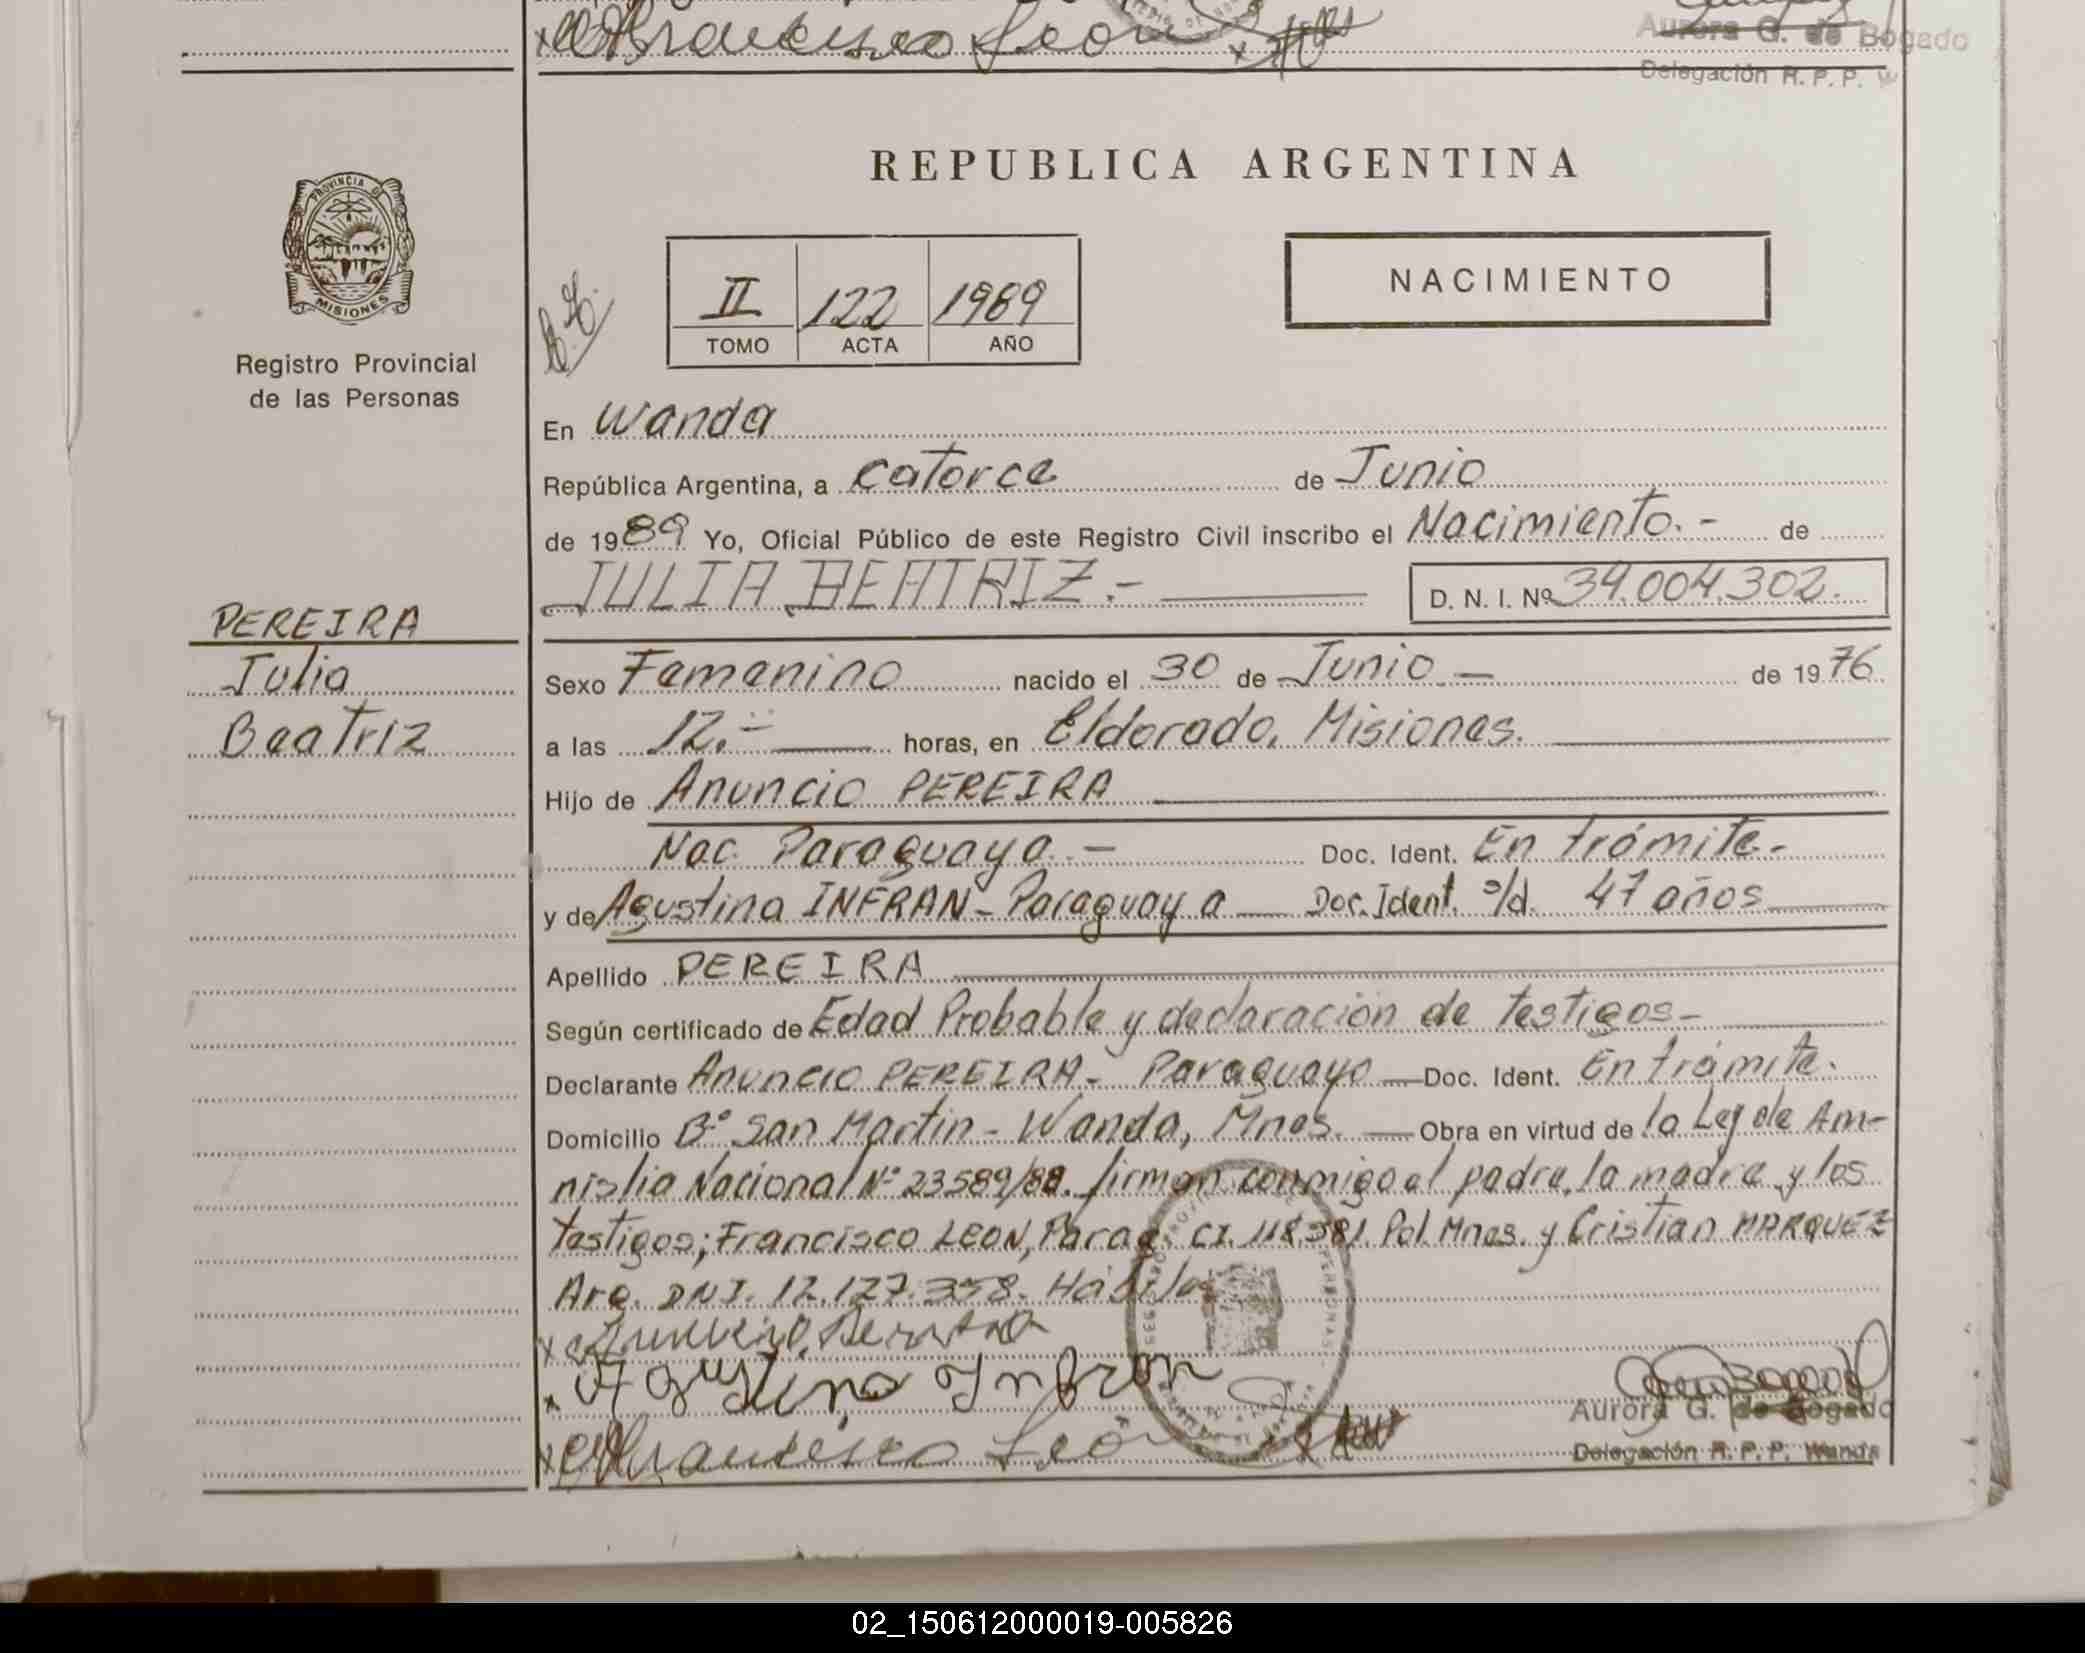 Francisco Leon
Aurora G. de Bogado
Delegación R. P. P. W
PROVINCIA D
MISIONES
Registro Provincial
de las Personas
REPUBLICA ARGENTINA
II 122 1989
TOMO ACTA AÑO
NACIMIENTO
En Wanda
República Argentina, a catorce de Junio
de 1989 Yo, Oficial Público de este Registro Civil inscribo el Nacimiento.- de
JULIA BEATRIZ.- D. N. I. Nº 34.004.302.
PEREIRA
Julia
Beatriz
Sexo Femenino nacido el 30 de Junio — de 1976
a las 12.- horas, en Eldorado, Misiones.
Hijo de Anuncio PEREIRA
Nac. Paraguaya.- Doc. Ident. En trámite.-
y de Agustina INFRAN- Paraguaya — Doc. Ident. s/d. 47 años
Apellido PEREIRA
Según certificado de Edad Probable y declaración de testigos-
Declarante Anuncio PEREIRA- Paraguayo — Doc. Ident. En trámite.
Domicilio Bº San Martin - Wanda, Mnes. — Obra en virtud de la Ley de Am-
nistia Nacional Nº 23589/88. firman conmigo el padre, la madre y los
testigos; Francisco LEON, Parag. CI. 118.381. Pol. Mnes. y Cristian MARQUEZ
Arg. DNI. 12.127.358. Hábiles
x Anuncio Pereira
x Agustina Infran
x Francisco Leon
Aurora G. de Bogado
Delegación R. P. P. Wanda
02_150612000019-005826